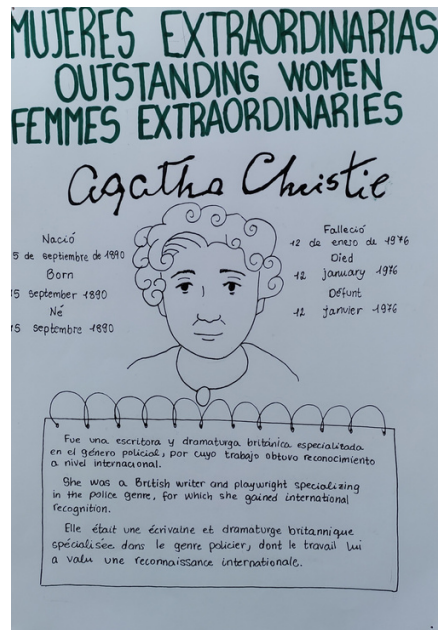 MUJERES EXTRAORDINARIAS
OUTSTANDING WOMEN
FEMMES EXTRAORDINARIES
Agatha Christie
Nació
5 de septiembre de 1890
Born
15 september 1890
Né
15 septembre 1890
Falleció
12 de enero de 1976
Died
12 january 1976
Défunt
12 janvier 1976
Fue una escritora y dramaturga británica especializada
en el género policial, por cuyo trabajo obtuvo reconocimiento
a nivel internacional.
She was a British writer and playwright specializing
in the police genre, for which she gained international
recognition.
Elle était une écrivaine et dramaturge britannique
spécialisée dans le genre policier, dont le travail lui
a valu une reconnaissance internationale.